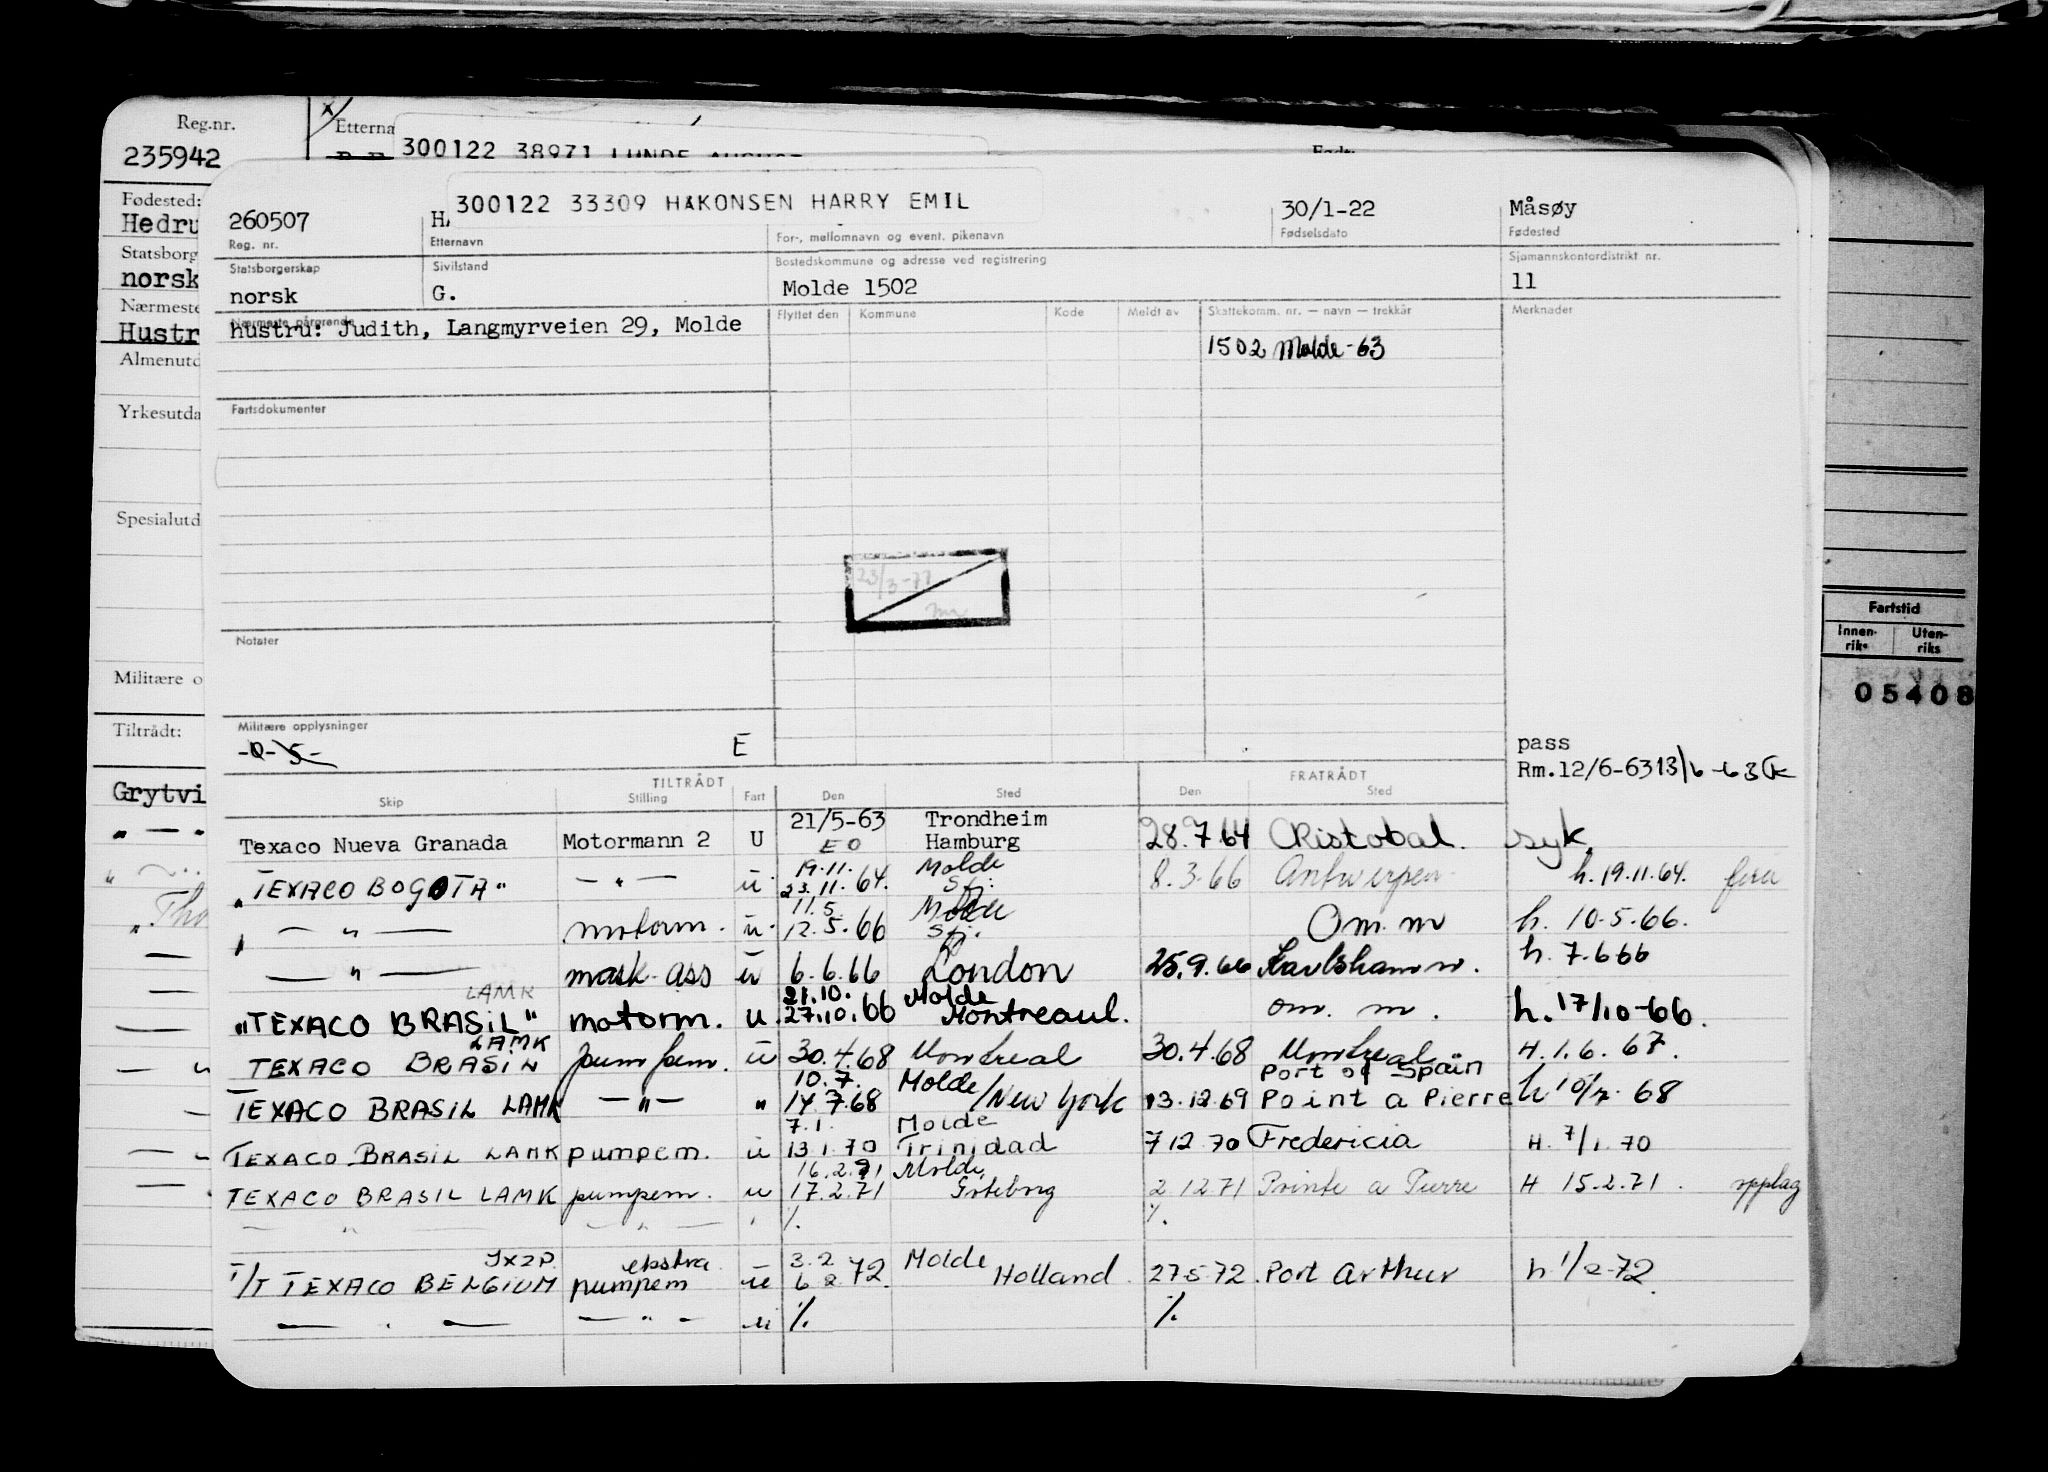 Reg.nr.
Etterna
235942
300122 38971 LUNDE AUGUST
Født:
Fødested:
Hedru
Statsborg
norsk
Nærmeste
Hustr
Almenutd
Yrkesutda
Spesialutd
Militære o
Tiltrådt:
Grytvi
300122 33309 HAKONSEN HARRY EMIL
260507
30/1-22
Måsøy
Reg. nr.
Etternavn
For-, mellomnavn og event. pikenavn
Fødselsdato
Fødested
Statsborgerskap
Sivilstand
Bostedskommune og adresse ved registrering
Sjømannskontordistrikt nr.
norsk
G.
Molde 1502
11
Nærmeste pårørende
Flyttet den
Kommune
Kode
Meldt av
Skattekomm. nr. — navn — trekkår
Merknader
hustru: Judith, Langmyrveien 29, Molde
1502 Molde-63
Fartsdokumenter
23/3-77
Notater
Militære opplysninger
E
pass
Rm.12/6-63 13/6-63
TILTRÅDT
FRATRÅDT
Skip
Stilling
Fart
Den
Sted
Den
Sted
Texaco Nueva Granada Motormann 2 U 21/5-63 EO Trondheim Hamburg 28.7.64 Cristobal. syk.
"TEXACO BOGOTA" — " — u 19.11. 23.11.64. Molde 8.3.66 Antwerpen h. 19.11.64.
— " — motorm. u. 11.5. 12.5.66 Molde Om. m h. 10.5.66.
— " — mask. ass u 6.6.66 London 25.9.66 Karlshamn. h. 7.6 66
"TEXACO BRASIL" LAMK motorm. u. 21.10. 27.10.66 Molde Montreaul. om. m. h. 17/10-66.
TEXACO BRASIN LAMK pumpem. u 30.4.68 Montreal 30.4.68 Montreal H. 1.6.67.
TEXACO BRASIL LAMK — " — " 10.7. 14.7.68 Molde/New York 13.12.69 Port of Spain Point a Pierre h. 10/7. 68
TEXACO BRASIL LAMK pumpem. u 7.1. 13.1.70 Molde Trinidad 7 12.70 Fredericia H. 7/1.70
TEXACO BRASIL LAMK pumpem. u 16.2.71 17.2.71 Molde, Göteborg 2.12.71 Pointe a Pierre H 15.2.71. opplag
— " — — " — ' %. %.
T/T TEXACO BELGIUM JXZP ekstra pumpem u 3.2 6.2.72. Molde Holland. 27.5.72. Port Arthur h 1/2-72.
— " — — " — u %. %.
Fartstid
Innen-
riks
Uten-
riks
05408